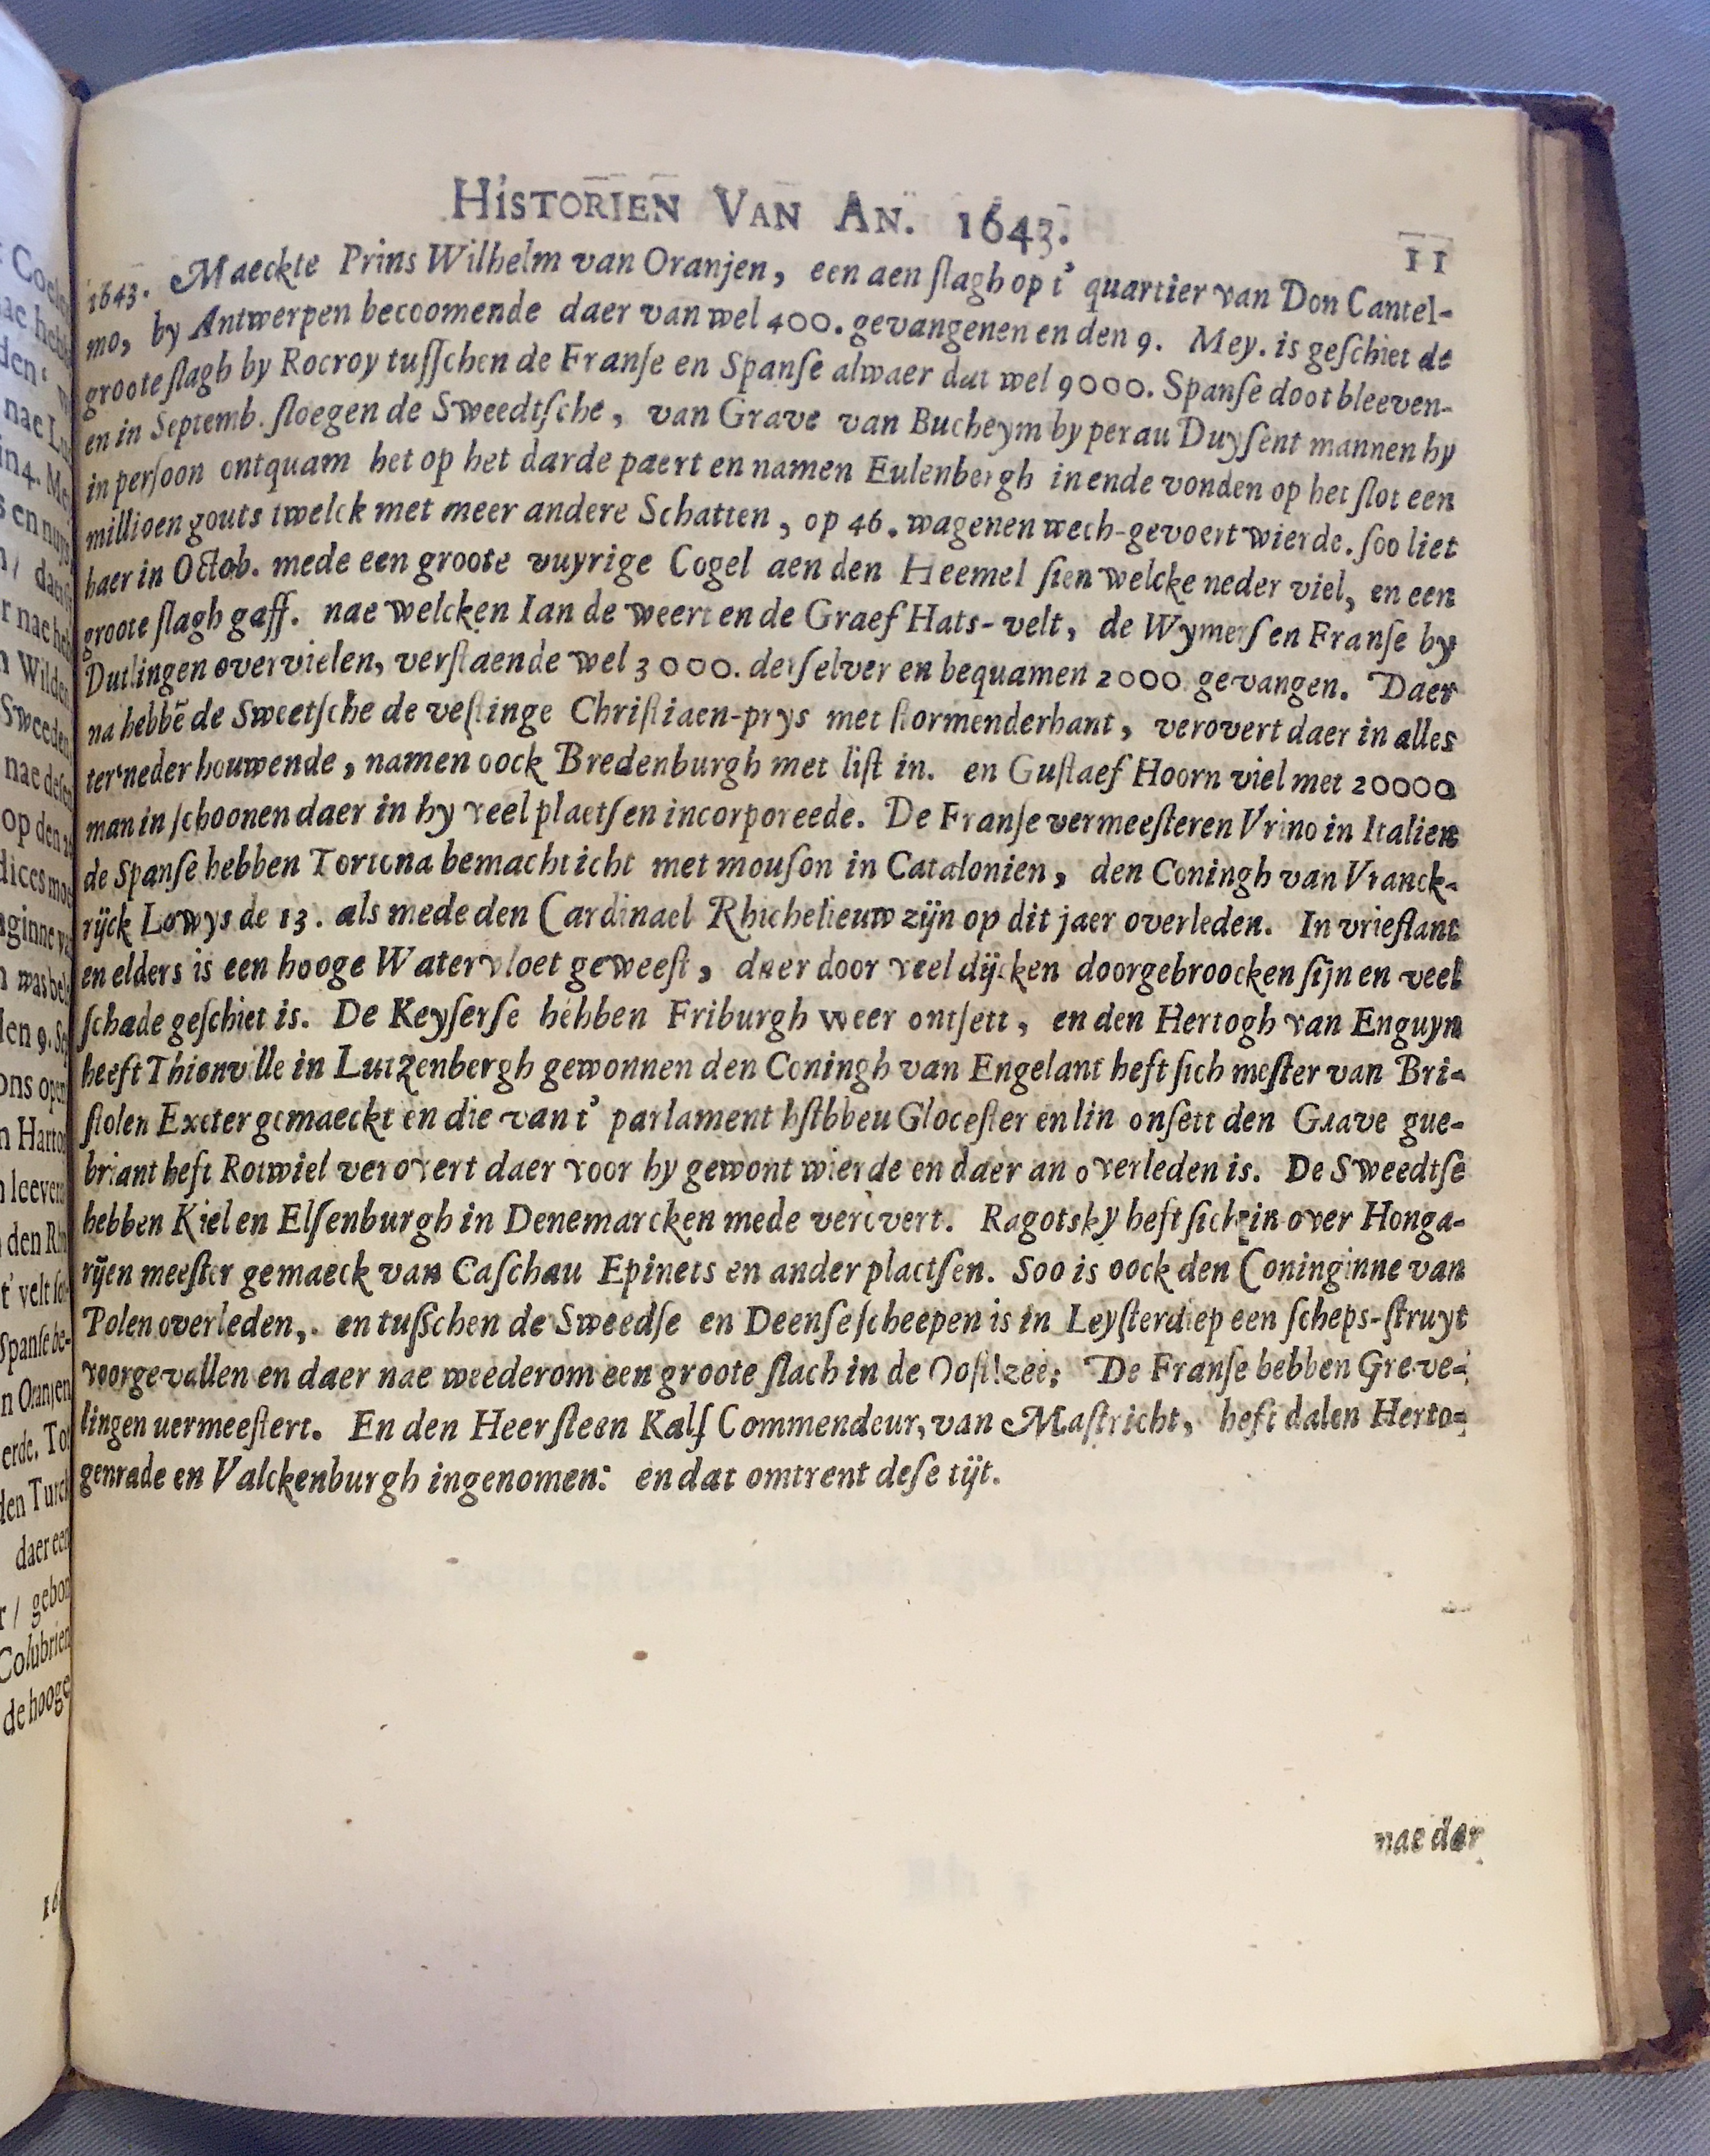 HiSTORIEN VAN AN. 1643.
11
1643. Maeckte Prins Wilhelm van Oranjen, een aen ſlagh op t' quartier van Don Cantel-
mo, by Antwerpen becoomende daer van wel 400. gevangenen en den 9. Mey. is geſchiet de
groote ſlagh by Rocroy tuſſchen de Franſe en Spanſe alwaer dat wel 9000. Spanſe doot bleeven-
en in Septemb. ſloegen de Sweedtſche, van Grave van Bucheym by perau Duyſent mannen hy
in perſoon ontquam het op het darde paert en namen Eulenbergh in ende vonden op het ſlot een
millioen gouts twelck met meer andere Schatten, op 46. wagenen wech-gevoert wierde. ſoo liet
haer in Octob. mede een groote vuyrige Cogel aen den Heemel ſien welcke neder viel, en een
groote ſlagh gaff. nae welcken Ian de weert en de Graef Hats-velt, de Wymerſ en Franſe by
Dutlingen overvielen, verſlaende wel 3000. derſelver en bequamen 2000 gevangen. Daer
na hebbē de Sweetſche de veſtinge Chriſtiaen-prys met ſtormenderhant, verovert daer in alles
ter neder houwende, namen oock Bredenburgh met liſt in. en Guſtaef Hoorn viel met 20000
man in ſchoonen daer in hy veel plaetſen incorporeede. De Franſe vermeeſteren Vrino in Italien
de Spanſe hebben Tortona bemachticht met mouſon in Catalonien, den Coningh van Vranck-
rijck Lowys de 13. als mede den Cardinael Rhichelieuw zijn op dit jaer overleden. In vrieſlant
en elders is een hooge Watervloet geweeſt, daer door veel dijcken doorgebroocken ſijn en veel
ſchade geſchiet is. De Keyſerſe hebben Friburgh weer ontſett, en den Hertogh van Enguyn
heeft Thionville in Lutzenbergh gewonnen den Coningh van Engelant heft ſich meſter van Bri-
ſtolen Exeter gemaeckt en die van t' parlament hſtbbeu Gloceſter en lin onſett den Grave gue-
briant heft Rotwiel verovert daer voor hy gewont wierde en daer an overleden is. De Sweedtſe
hebben Kiel en Elſenburgh in Denemarcken mede verovert. Ragotsky heft ſich in over Honga-
rijen meeſter gemaeck van Caſchau Epinets en ander plaetſen. Soo is oock den Coninginne van
Polen overleden,. en tuſſchen de Sweedſe en Deenſe ſcheepen is in Leyſterdiep een ſcheps-ſtruyt
voorgevallen en daer nae weederom een groote ſlach in de Ooſtzee; De Franſe hebben Greve-
lingen uermeeſtert. En den Heer ſteen Kalſ Commendeur, van Maſtricht, heft dalen Herto-
genrade en Valckenburgh ingenomen: en dat omtrent deſe tijt.
nae der